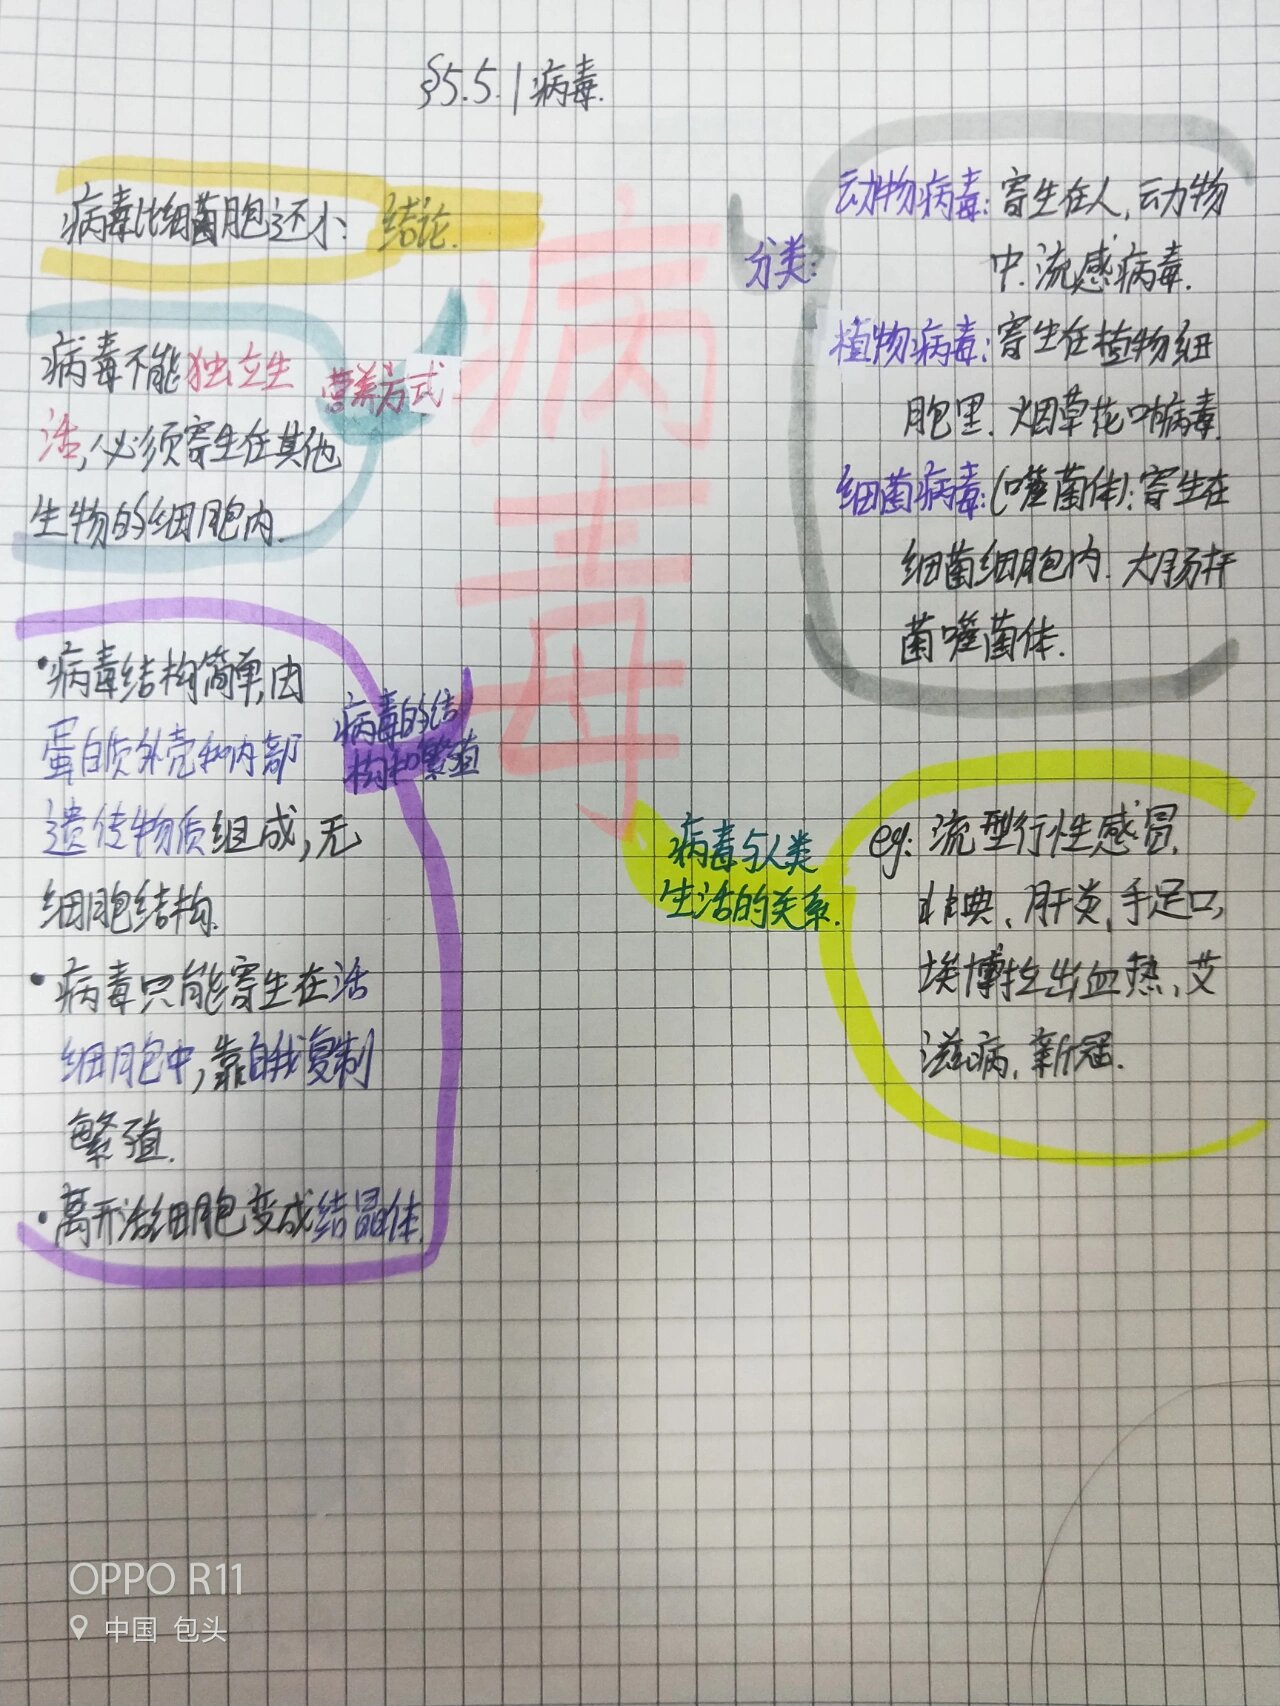 §5.5.1 病毒.
病毒比细菌胞还小:
结论.
病毒不能独立生
活,必须寄生在其他
生物的细胞内.
营养方式
•病毒结构简单,由
蛋白质外壳和内部
遗传物质组成,无
细胞结构.
•病毒只能寄生在活
细胞中,靠自我复制
繁殖.
•离开活细胞变成结晶体.
病毒的结
构和繁殖
病毒
分类:
动物病毒:寄生在人,动物
中.流感病毒.
植物病毒:寄生在植物细
胞里.烟草花叶病毒.
细菌病毒:(噬菌体):寄生在
细菌细胞内.大肠杆
菌噬菌体.
病毒与人类
生活的关系.
eg:流型行性感冒,
非典、肝炎,手足口,
埃博拉出血热,艾
滋病,新冠.
OPPO R11
中国 包头